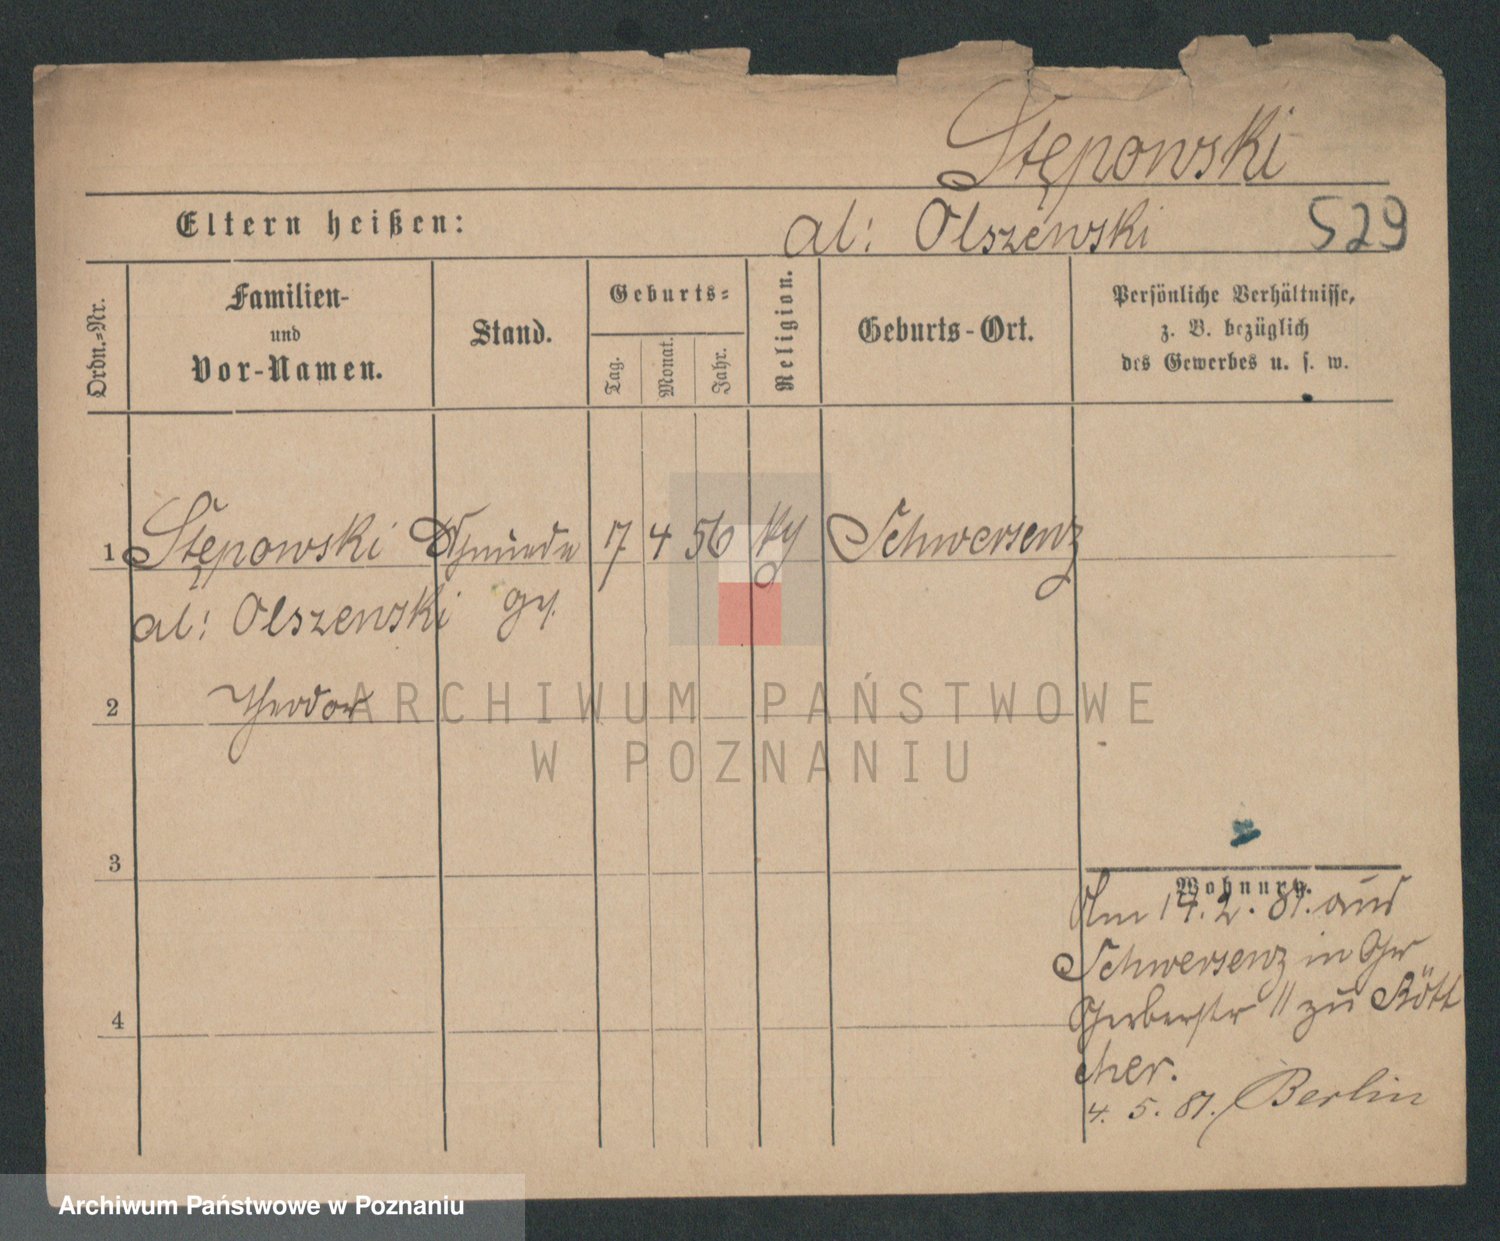 Stępowski
Eltern heißen:
al: Olszewski 529
Ordn.-Nr.
Familien-
und
Vor-Namen.
Stand.
Geburts-
Tag.
Monat.
Jahr.
Religion.
Geburts-Ort.
Persönliche Verhältnisse,
z. B. bezüglich
des Gewerbes u. s. w.
1 Stępowski Schmiede 17 4 56 kg Schwersenz
al: Olszewski
2 Theodor
ARCHIWUM PAŃSTWOWE
W POZNANIU
3
Wohnung.
Am 14. 2. 81. aus
Schwersenz in
Gerberstr 11 zu Bött
cher.
4
4. 5. 81. Berlin
Archiwum Państwowe w Poznaniu